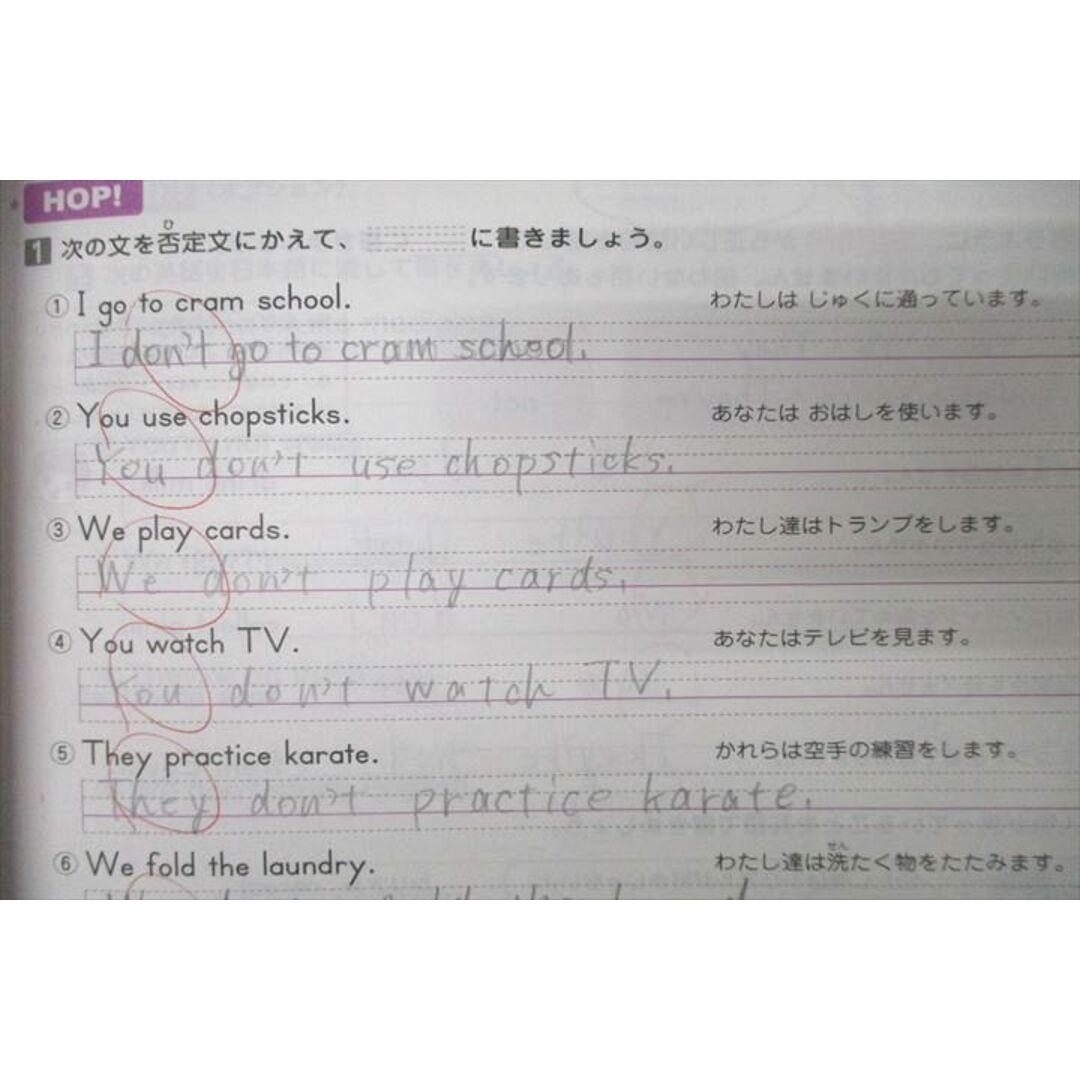 HOP!
1 次の文を否定文にかえて、＿＿に書きましょう。
① I go to cram school. わたしは じゅくに通っています。
I don't go to cram school.
② You use chopsticks. あなたは おはしを使います。
You don't use chopsticks.
③ We play cards. わたし達はトランプをします。
We don't play cards.
④ You watch TV. あなたはテレビを見ます。
You don't watch TV.
⑤ They practice karate. かれらは空手の練習をします。
They don't practice karate.
⑥ We fold the laundry. わたし達は洗たく物をたたみます。